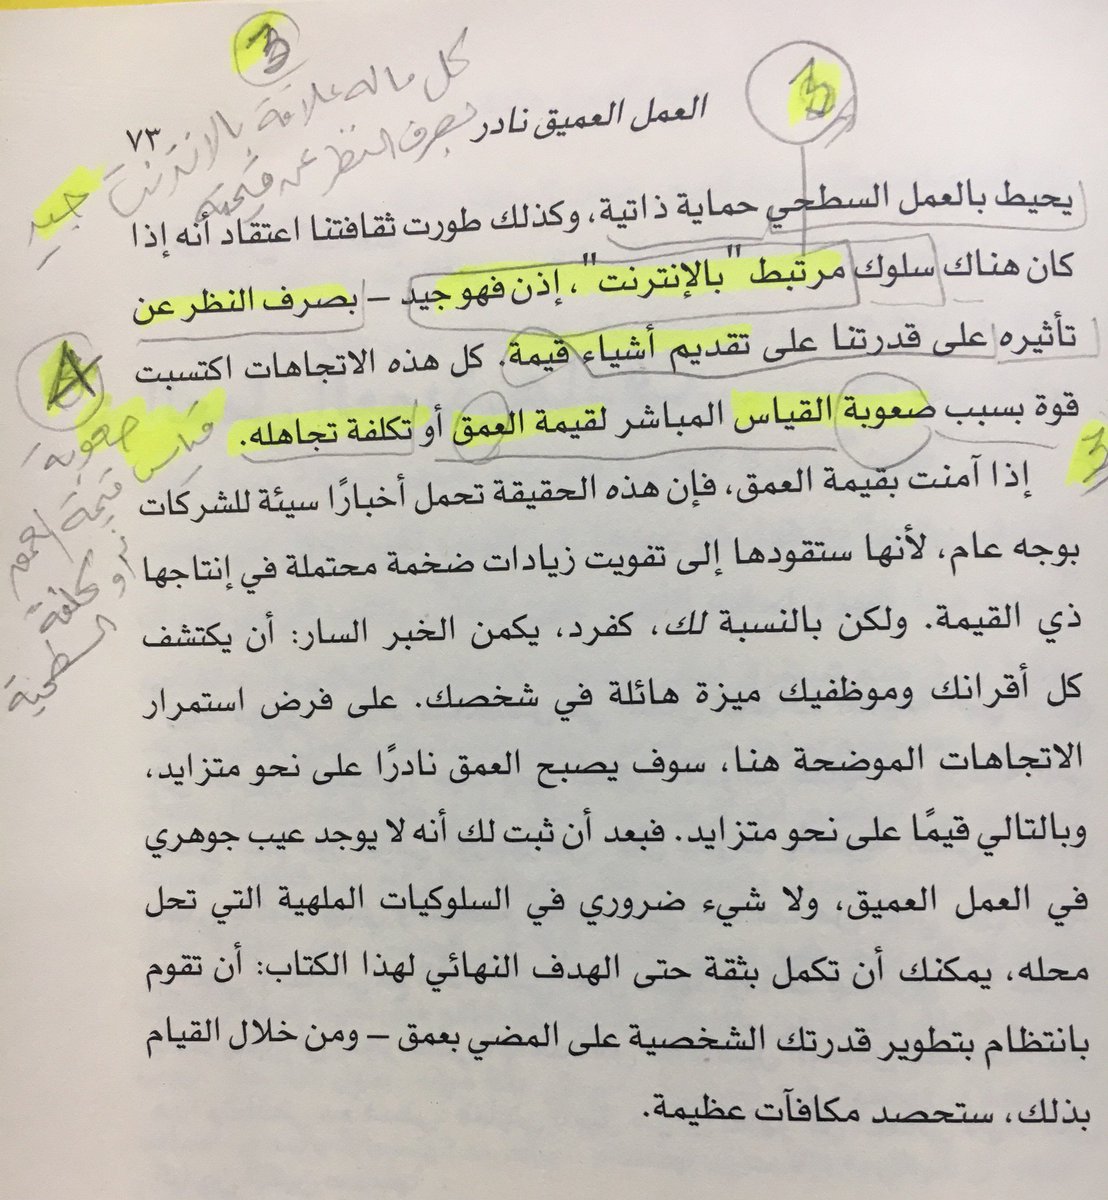 3
3
كل ماله علاقة بالانترنت جيد
بصرف النظر عن قيمته
العمل العميق نادر ٧٣
يحيط بالعمل السطحي حماية ذاتية، وكذلك طورت ثقافتنا اعتقاد أنه إذا
كان هناك سلوك مرتبط "بالإنترنت"، إذن فهو جيد – بصرف النظر عن
تأثيره على قدرتنا على تقديم أشياء قيمة. كل هذه الاتجاهات اكتسبت
قوة بسبب صعوبة القياس المباشر لقيمة العمق أو تكلفة تجاهله.
إذا آمنت بقيمة العمق، فإن هذه الحقيقة تحمل أخبارًا سيئة للشركات
بوجه عام، لأنها ستقودها إلى تفويت زيادات ضخمة محتملة في إنتاجها
ذي القيمة. ولكن بالنسبة لك، كفرد، يكمن الخبر السار: أن يكتشف
كل أقرانك وموظفيك ميزة هائلة في شخصك. على فرض استمرار
الاتجاهات الموضحة هنا، سوف يصبح العمق نادرًا على نحو متزايد،
وبالتالي قيمًا على نحو متزايد. فبعد أن ثبت لك أنه لا يوجد عيب جوهري
في العمل العميق، ولا شيء ضروري في السلوكيات الملهية التي تحل
محله، يمكنك أن تكمل بثقة حتى الهدف النهائي لهذا الكتاب: أن تقوم
بانتظام بتطوير قدرتك الشخصية على المضي بعمق – ومن خلال القيام
بذلك، ستحصد مكافآت عظيمة.
3
صعوبة
قياس قيمة العمق
أو تكلفة
السطحية